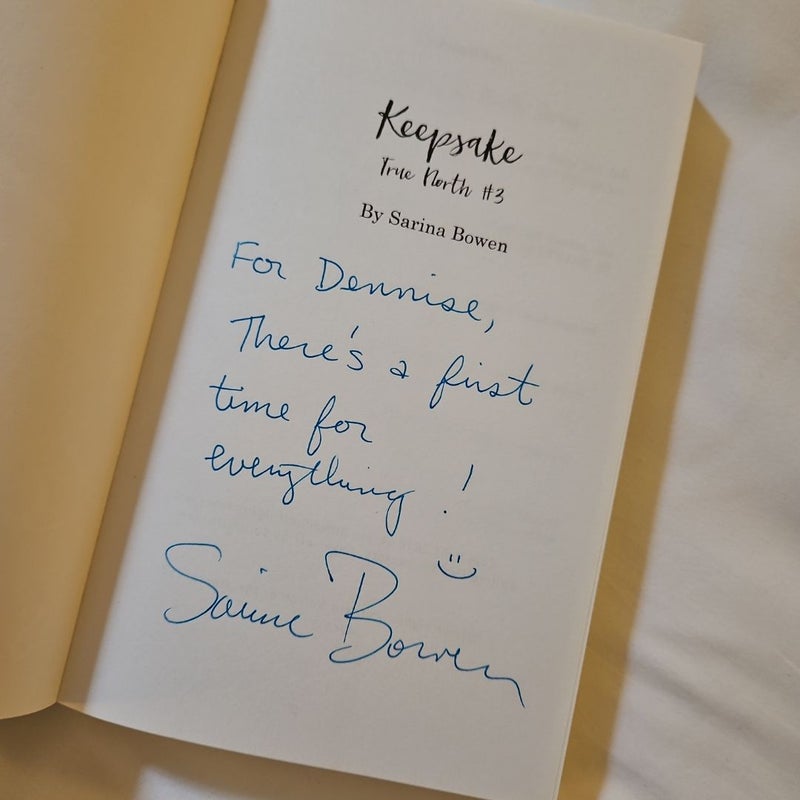 Keepsake
True North #3
By Sarina Bowen
For Dennise,
There's a first
time for
everything!
Sarina Bowen